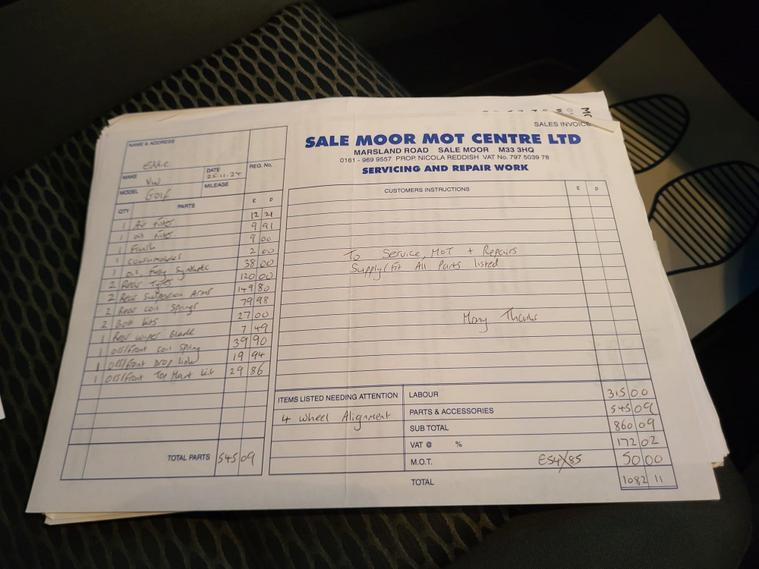 SALES INVOICE
SALE MOOR MOT CENTRE LTD
MARSLAND ROAD SALE MOOR M33 3HQ
0161 - 969 9557 PROP. NICOLA REDDISH VAT No. 797 5039 78
SERVICING AND REPAIR WORK
NAME & ADDRESS
Eddie
MAKE VW DATE 25.11.24 REG. No.
MODEL Golf MILEAGE
QTY PARTS £ P
1 Air filter 12 21
1 oil filter 9 91
1 Flush 9 00
1 consumables 2 00
1 oil fully Synthetic 38 00
2 Rear Tyres 120 00
2 Rear Suspension Arms 149 80
2 Rear coil Springs 79 98
2 Bolt kits 27 00
1 Rear wiper Blade 7 49
1 O/S/front coil Spring 39 90
1 O/S/front Drop Link 19 94
1 O/S/front Top Mount kit 29 86
TOTAL PARTS 545 09
CUSTOMERS INSTRUCTIONS £ P
To Service, MOT + Repairs
Supply/Fit All Parts listed
Many Thanks
ITEMS LISTED NEEDING ATTENTION
4 Wheel Alignment
LABOUR 315 00
PARTS & ACCESSORIES 545 09
SUB TOTAL 860 09
VAT @ % 172 02
M.O.T. 50 00
TOTAL 1082 11